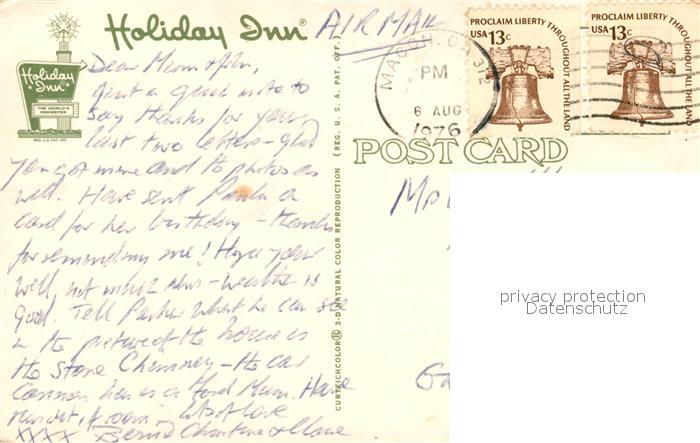 Holiday Inn®
AIR MAIL
Holiday
Inn®
THE WORLD'S
INNKEEPER
REG. U.S. PAT. OFF.
Dear Mum & John,
Just a quick note to
say thanks for your
last two letters - glad
you got mine and the photos as
well. Have sent Paula a
card for her birthday - thanks
for reminding me! Hope your
well, not much news - weather is
good. Tell Parker what he can see
in the picture of the house is
the Stone Chimney - the car
Connon has is a Ford
Have
room. Lots of love
XXXX Bernie Christine &
CURTEICHCOLOR® 3-D NATURAL COLOR REPRODUCTION (REG. U.S.A. PAT. OFF.)
POST CARD
MACON, GA 312
PM
6 AUG
1976
PROCLAIM LIBERTY THROUGHOUT ALL THE LAND
USA 13c
PROCLAIM LIBERTY THROUGHOUT ALL THE LAND
USA 13c
privacy protection
Datenschutz